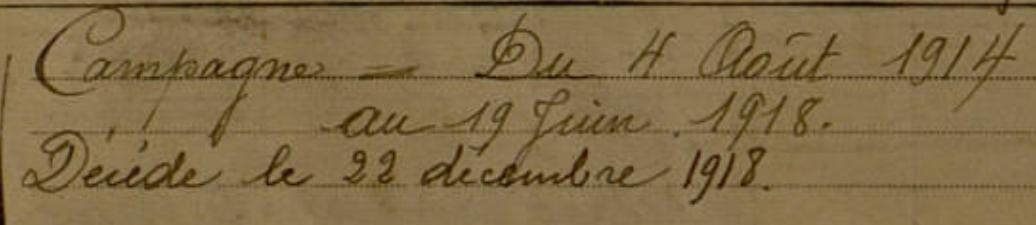 Campagne = Du 4 Août 1914
au 19 Juin 1918.
Décédé le 22 décembre 1918.